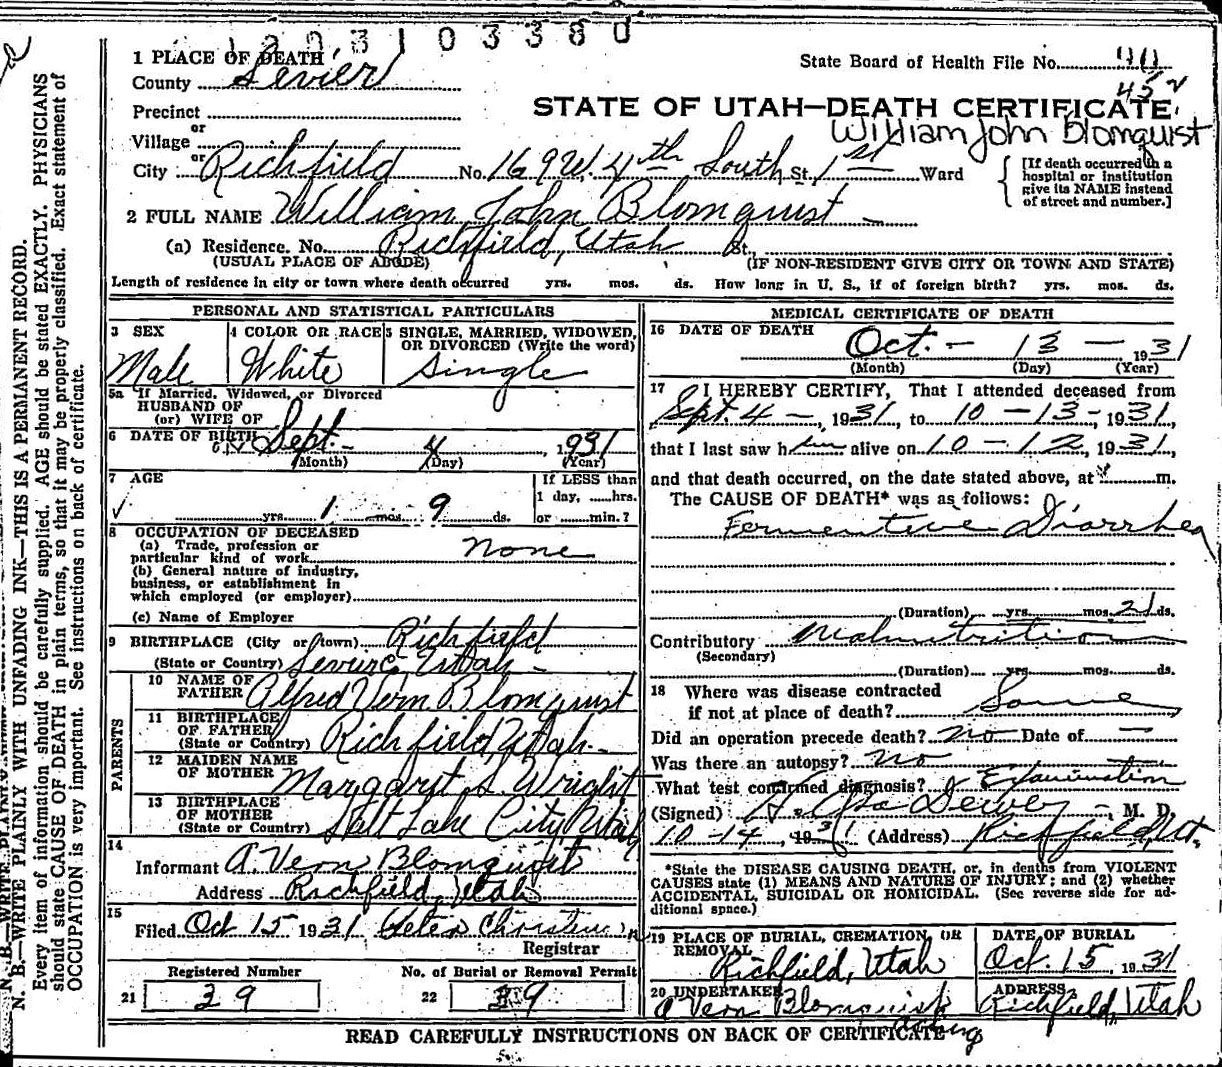 1 PLACE OF DEATH
County Sevier
State Board of Health File No.
452
Precinct
or
Village
STATE OF UTAH—DEATH CERTIFICATE
William John Blomquist
or
City Richfield No. 169 W. 4th South St. 1st Ward
[If death occurred in a hospital or institution give its NAME instead of street and number.]
2 FULL NAME William John Blomquist
(a) Residence. No. Richfield, Utah St.,
(USUAL PLACE OF ABODE) (IF NON-RESIDENT GIVE CITY OR TOWN AND STATE)
Length of residence in city or town where death occurred yrs. mos. ds. How long in U. S., if of foreign birth? yrs. mos. ds.
PERSONAL AND STATISTICAL PARTICULARS
3 SEX Male
4 COLOR OR RACE White
5 SINGLE, MARRIED, WIDOWED, OR DIVORCED (Write the word) Single
5a If Married, Widowed, or Divorced
HUSBAND OF
(or) WIFE OF
6 DATE OF BIRTH Sept. 4, 1931
(Month) (Day) (Year)
7 AGE
yrs. 1 mos. 9 ds.
If LESS than
1 day, ......hrs.
or ......min.?
8 OCCUPATION OF DECEASED
(a) Trade, profession or
particular kind of work None
(b) General nature of industry,
business, or establishment in
which employed (or employer)
(c) Name of Employer
9 BIRTHPLACE (City or town) Richfield
(State or Country) Sevier Co Utah
PARENTS
10 NAME OF FATHER Alfred Vern Blomquist
11 BIRTHPLACE OF FATHER (State or Country) Richfield, Utah
12 MAIDEN NAME OF MOTHER Margaret S. Wright
13 BIRTHPLACE OF MOTHER (State or Country) Salt Lake City Utah
14
Informant A. Vern Blomquist
Address Richfield, Utah
15
Filed Oct 15 1931 Peter Christensen
Registrar
Registered Number
21 39
No. of Burial or Removal Permit
22 39
MEDICAL CERTIFICATE OF DEATH
16 DATE OF DEATH
Oct. - 13 - 1931
(Month) (Day) (Year)
17 I HEREBY CERTIFY, That I attended deceased from
Sept. 4 - 1931, to 10 - 13 - 1931,
that I last saw him alive on 10 - 12, 1931,
and that death occurred, on the date stated above, at m.
The CAUSE OF DEATH* was as follows:
Fermentive Diarrhea
(Duration) yrs. mos. 21 ds.
Contributory Malnutrition
(Secondary)
(Duration) yrs. mos. ds.
18 Where was disease contracted
if not at place of death? Same
Did an operation precede death? No Date of —
Was there an autopsy? No
What test confirmed diagnosis? Examination
(Signed) H. Asa Dewey, M. D.
10-14, 1931 (Address) Richfield, Ut.
*State the DISEASE CAUSING DEATH, or, in deaths from VIOLENT
CAUSES state (1) MEANS AND NATURE OF INJURY; and (2) whether
ACCIDENTAL, SUICIDAL OR HOMICIDAL. (See reverse side for ad-
ditional space.)
19 PLACE OF BURIAL, CREMATION, OR REMOVAL
Richfield, Utah
DATE OF BURIAL
Oct 15, 1931
20 UNDERTAKER
A Vern Blomquist
Acting
ADDRESS
Richfield, Utah
READ CAREFULLY INSTRUCTIONS ON BACK OF CERTIFICATE
N. B.—WRITE PLAINLY WITH UNFADING INK—THIS IS A PERMANENT RECORD.
Every item of information should be carefully supplied. AGE should be stated EXACTLY. PHYSICIANS
should state CAUSE OF DEATH in plain terms, so that it may be properly classified. Exact statement of
OCCUPATION is very important. See instructions on back of certificate.